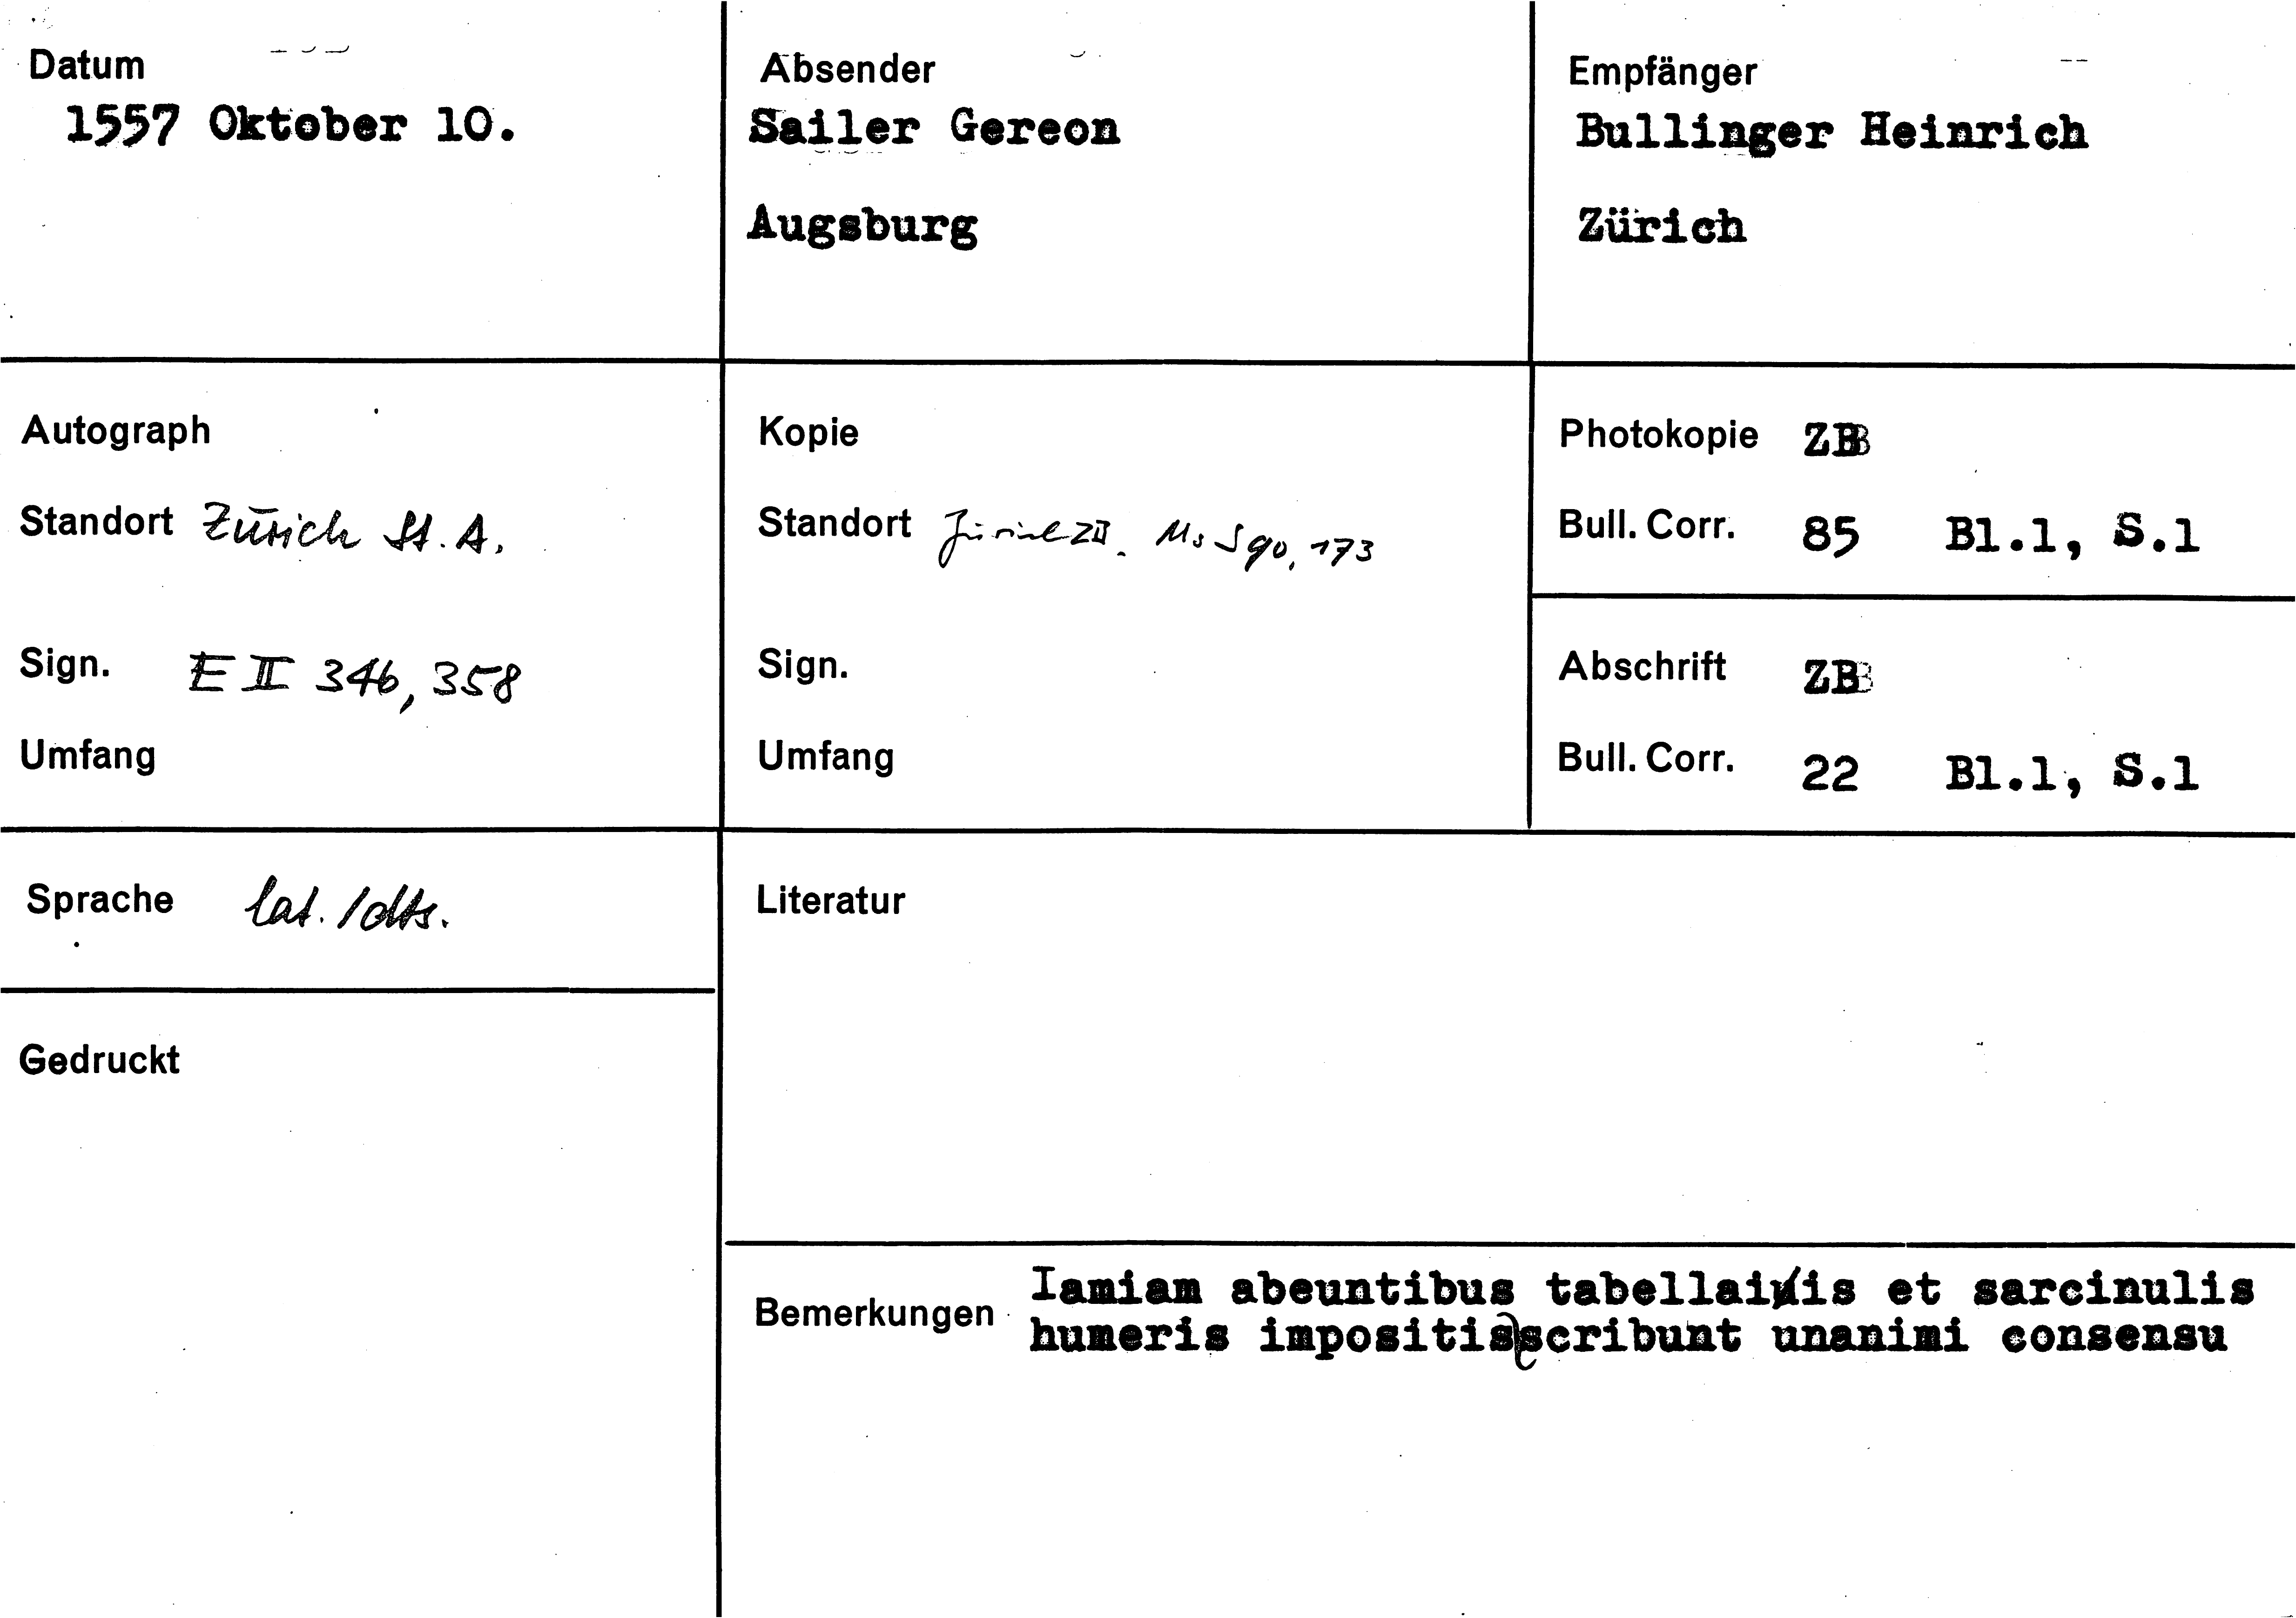 Datum
1557 Oktober 10.
Absender
Sailer Gereon
Augsburg
Empfänger
Bullinger Heinrich
Zürich
Autograph
Standort Zürich St. A.
Sign. E II 346, 358
Umfang
Kopie
Standort Zürich ZB. Ms S 90, 173
Sign.
Umfang
Photokopie ZB
Bull. Corr. 85 Bl.1, S.1
Abschrift ZB
Bull. Corr. 22 Bl.1, S.1
Sprache lat. / dts.
Gedruckt
Literatur
Bemerkungen
Iamiam abeuntibus et sarcinulis
humeris impositis scribunt unanimi consensu